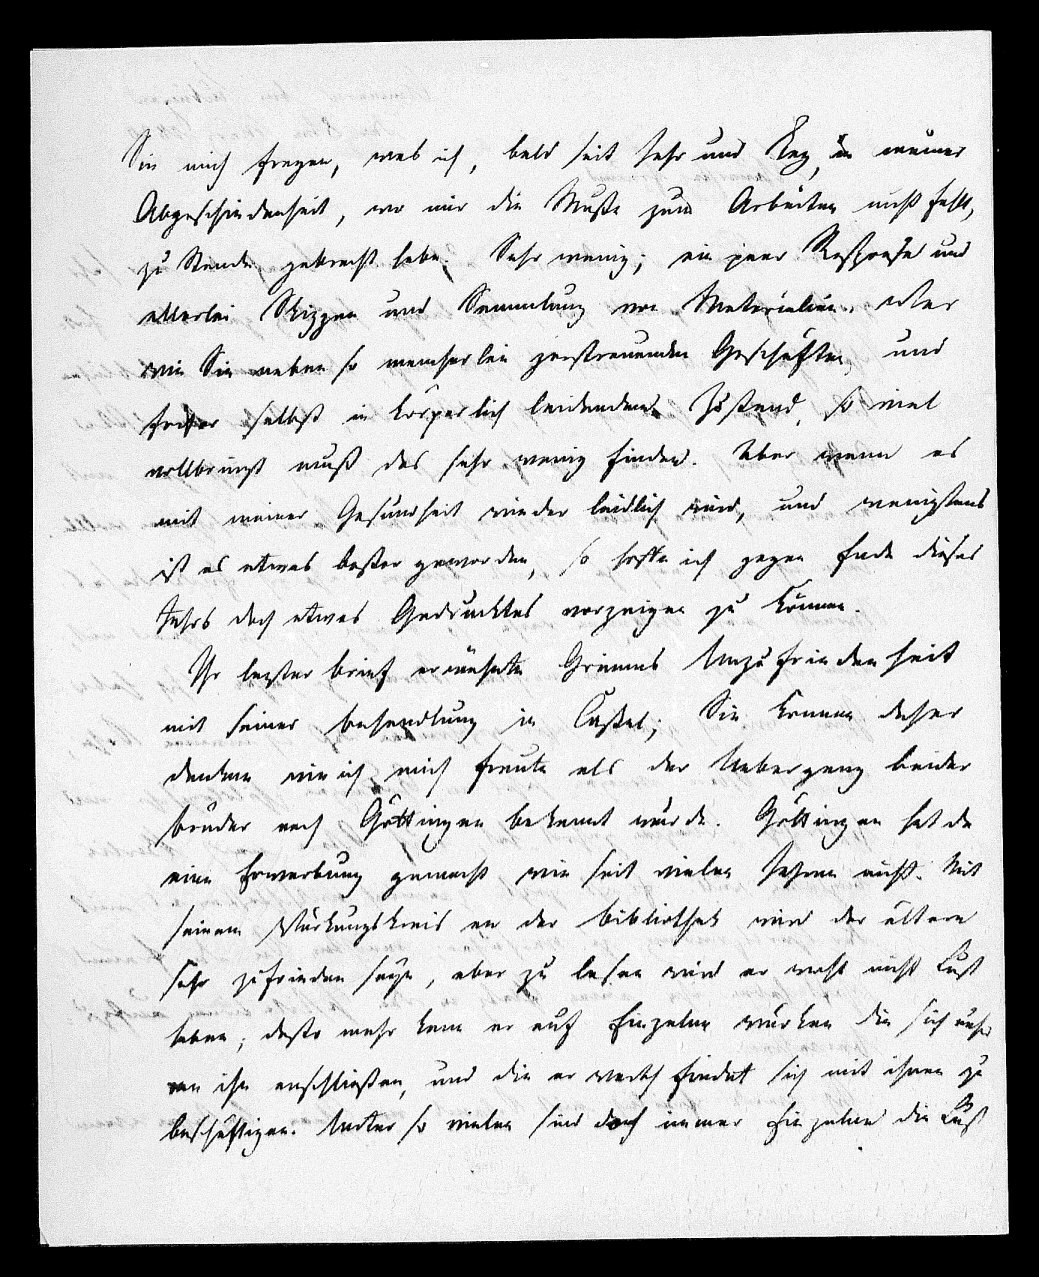 Sie mich fragen, was ich, bald seit Jahr und Tag, in meiner
Abgeschiedenheit, wo mir die Muße zum Arbeiten nicht fehlt,
zu Stande gebracht habe. Sehr wenig; ein paar und
allerlei Skizzen und Sammlung von Materialien. Wer
wie Sie neben so mancherlei zerstreuenden Geschäften, und
früher selbst in körperlich leidendem Zustand, so viel
vollbringt muß das sehr wenig finden. Aber wenn es
mit meiner Gesundheit wieder leidlich wird, und wenigstens
ist es etwas besser geworden, so hoffe ich gegen Ende dieses
Jahrs doch etwas Gedrucktes vorzeigen zu können.
Ihr lezter brief erwähnte Grimms Unzufriedenheit
mit seiner behandlung in Cassel; Sie können daher
denken wie ich mich freute als der Uebergang beider
brüder nach Göttingen bekannt wurde. Göttingen hat da
eine Erwerbung gemacht wie seit vielen Jahren nicht. Mit
seinem Würkungskreis an der bibliothek wird der ältere
sehr zufrieden seyn, aber zu lesen wird er wohl nicht Lust
haben; desto mehr kann er auf Einzelne würken die sich näher
an ihn anschließen, und die er werth findet sich mit ihnen zu
beschäftigen. Unter so vielen sind doch immer Einzelne die Lust